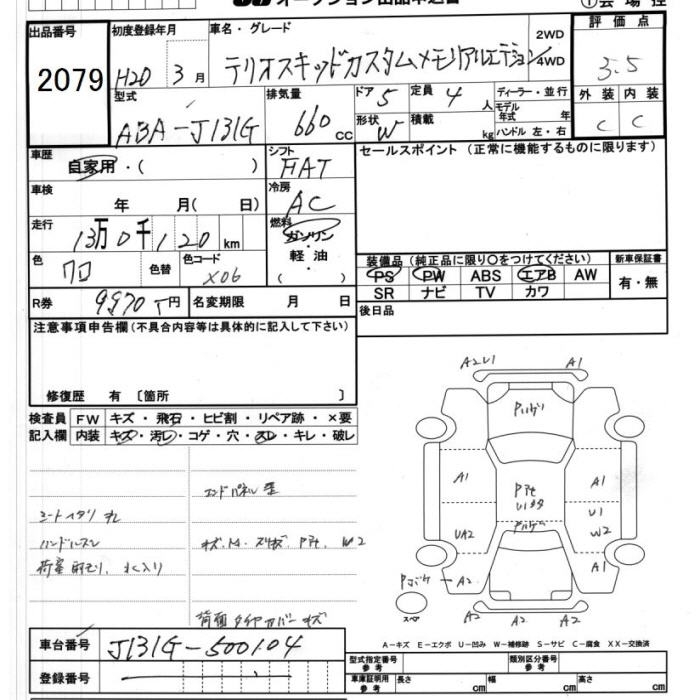 オークション出品申込書
出品番号 2079
初度登録年月 H20 3月
車名・グレード テリオスキッドカスタムメモリアルエディション
2WD
4WD
評価点 3.5
外装 内装
C C
型式 ABA-J131G
排気量 660 cc
ドア 5 定員 4人
形状 W 積載 kg
ディーラー・並行
モデル年式 年
ハンドル 左・右
車歴 自家用・( )
シフト FAT
セールスポイント (正常に機能するものに限ります)
車検 年 月( 日)
冷房 AC
走行 13万0千120km
燃料 ガソリン・軽油・( )
色 クロ 色替 色コード X06
装備品 (純正品に限り○をつけてください)
PS PW ABS エアB AW
SR ナビ TV カワ
新車保証書
有・無
R券 9970 円 名変期限 月 日
後日品
注意事項申告欄(不具合内容等は具体的に記入して下さい)
修復歴 有 [箇所 ]
検査員記入欄
FW キズ・飛石・ヒビ割・リペア跡・×要
内装 キズ・汚レ・コゲ・穴・スレ・キレ・破レ
シートヘタリ
背面タイヤカバーキズ
A2U1 A1
A1 A1
U1
UA2 W2
A1
A2 A2
A2 A2
スペア
車台番号 J131G-500104
登録番号
A-キズ E-エクボ U-凹み W-補修跡 S-サビ C-腐食 XX-交換済
型式指定番号参考 類別区分番号参考
車庫証明用参考 長さ cm 幅 cm 高さ cm